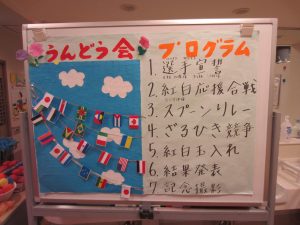 うんどう会 プログラム
1. 選手宣誓
2. 紅白応援合戦
3. スプーンリレー
4. ざるひき競争
5. 紅白玉入れ
6. 結果発表
7. 記念撮影